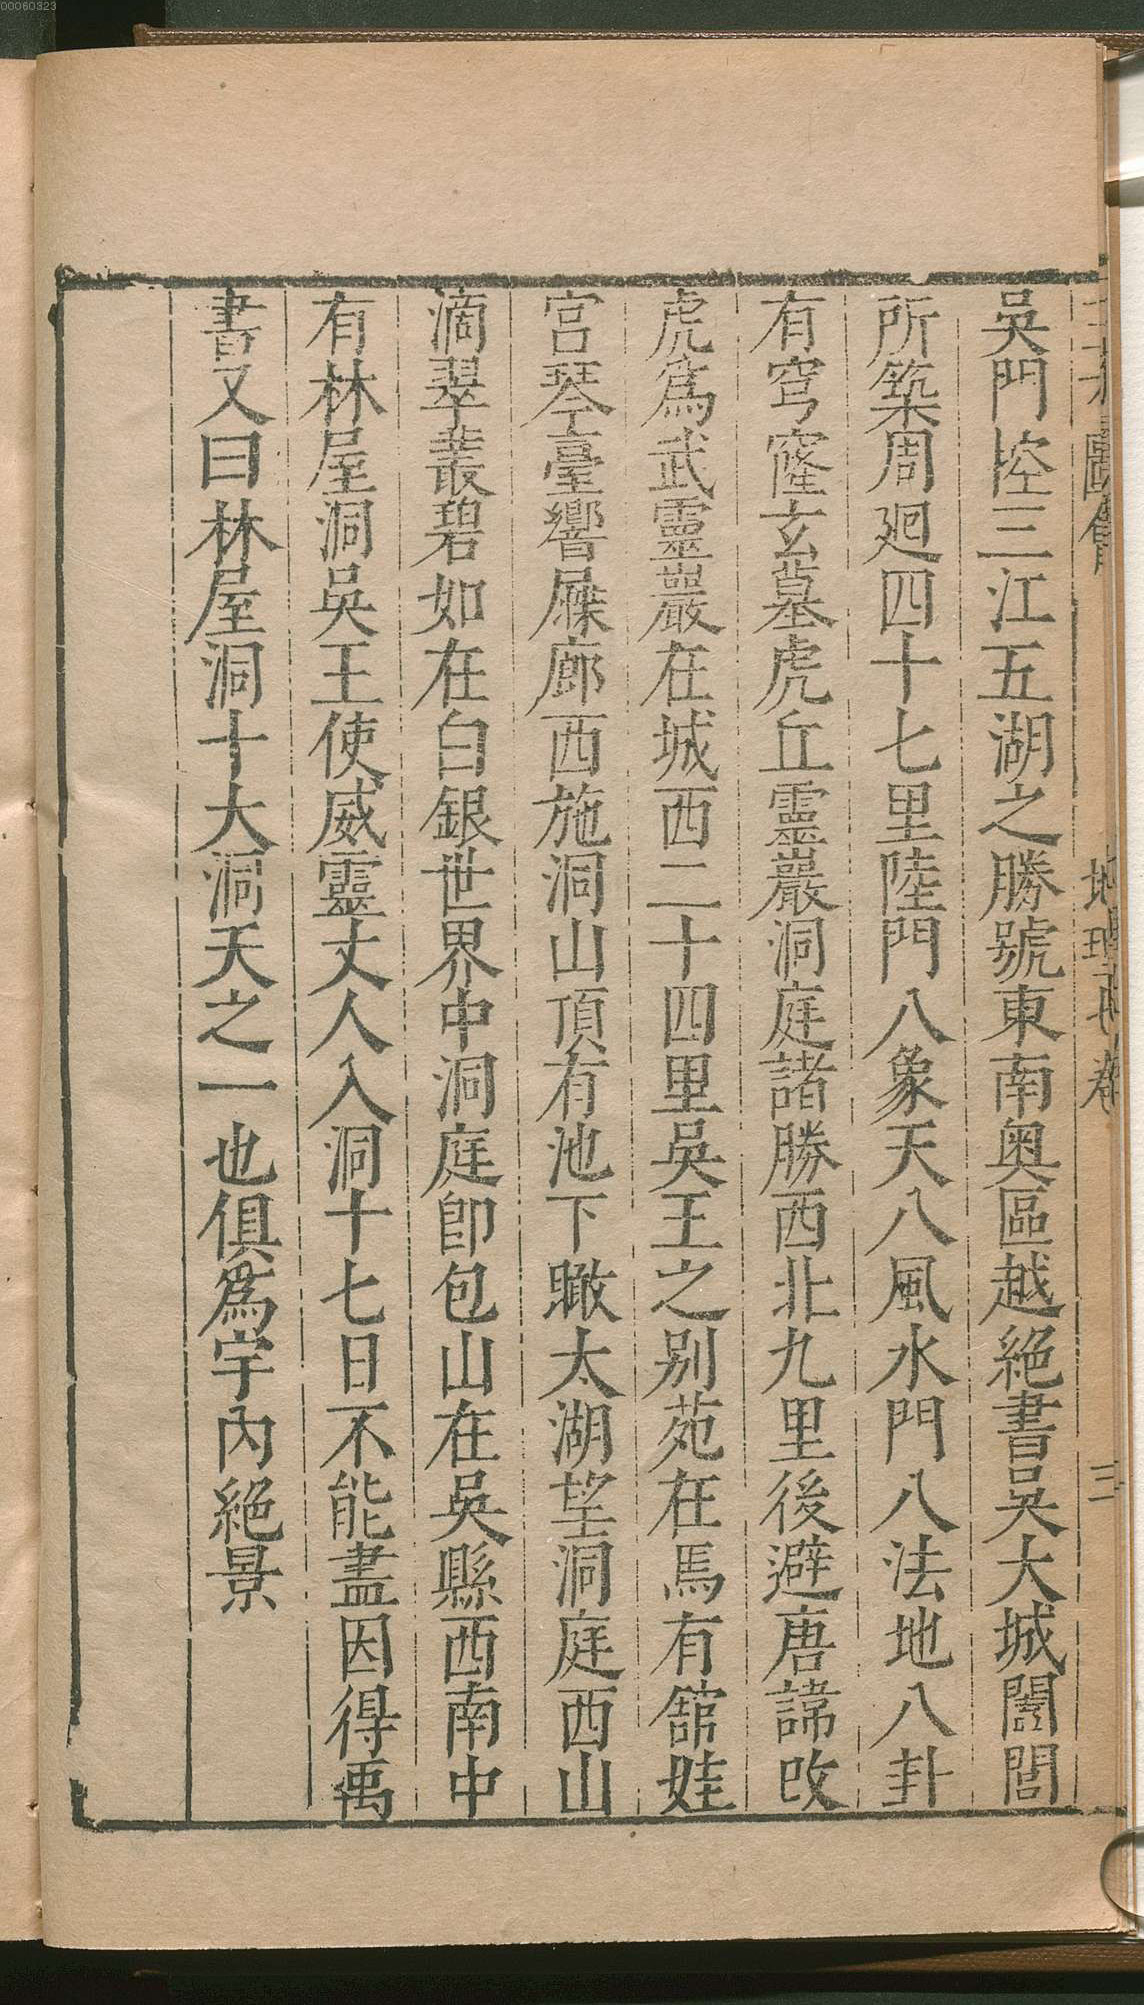 00060323
吳門控三江五湖之勝號東南奥區越絕書吳大城闔閭
所築周廻四十七里陸門八象天八風水門八法地八卦
有穹窿玄墓虎丘靈巖洞庭諸勝西北九里後避唐諱改
虎爲武靈巖在城西二十四里吳王之别苑在焉有舘娃
宫琴臺響屧廊西施洞山頂有池下瞰太湖望洞庭西山
滴翠叢碧如在白銀世界中洞庭卽包山在吳縣西南中
有林屋洞吳王使威靈丈人入洞十七日不能盡因得禹
書又曰林屋洞十大洞天之一也俱爲宇內絕景